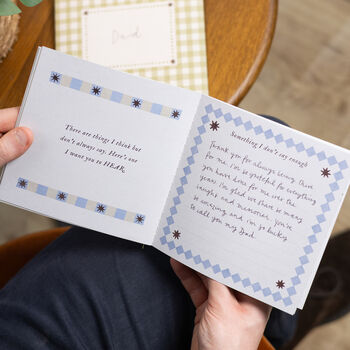 Dad
There are things I think but
don't always say. Here's one
I want you to HEAR.
Something I don't say enough
Thank you for always being there
for me. I'm so grateful for everything
you have done for me over the
years. I'm glad we share so many
laughs and memories. You're
so amazing and I'm so lucky
to call you my Dad.